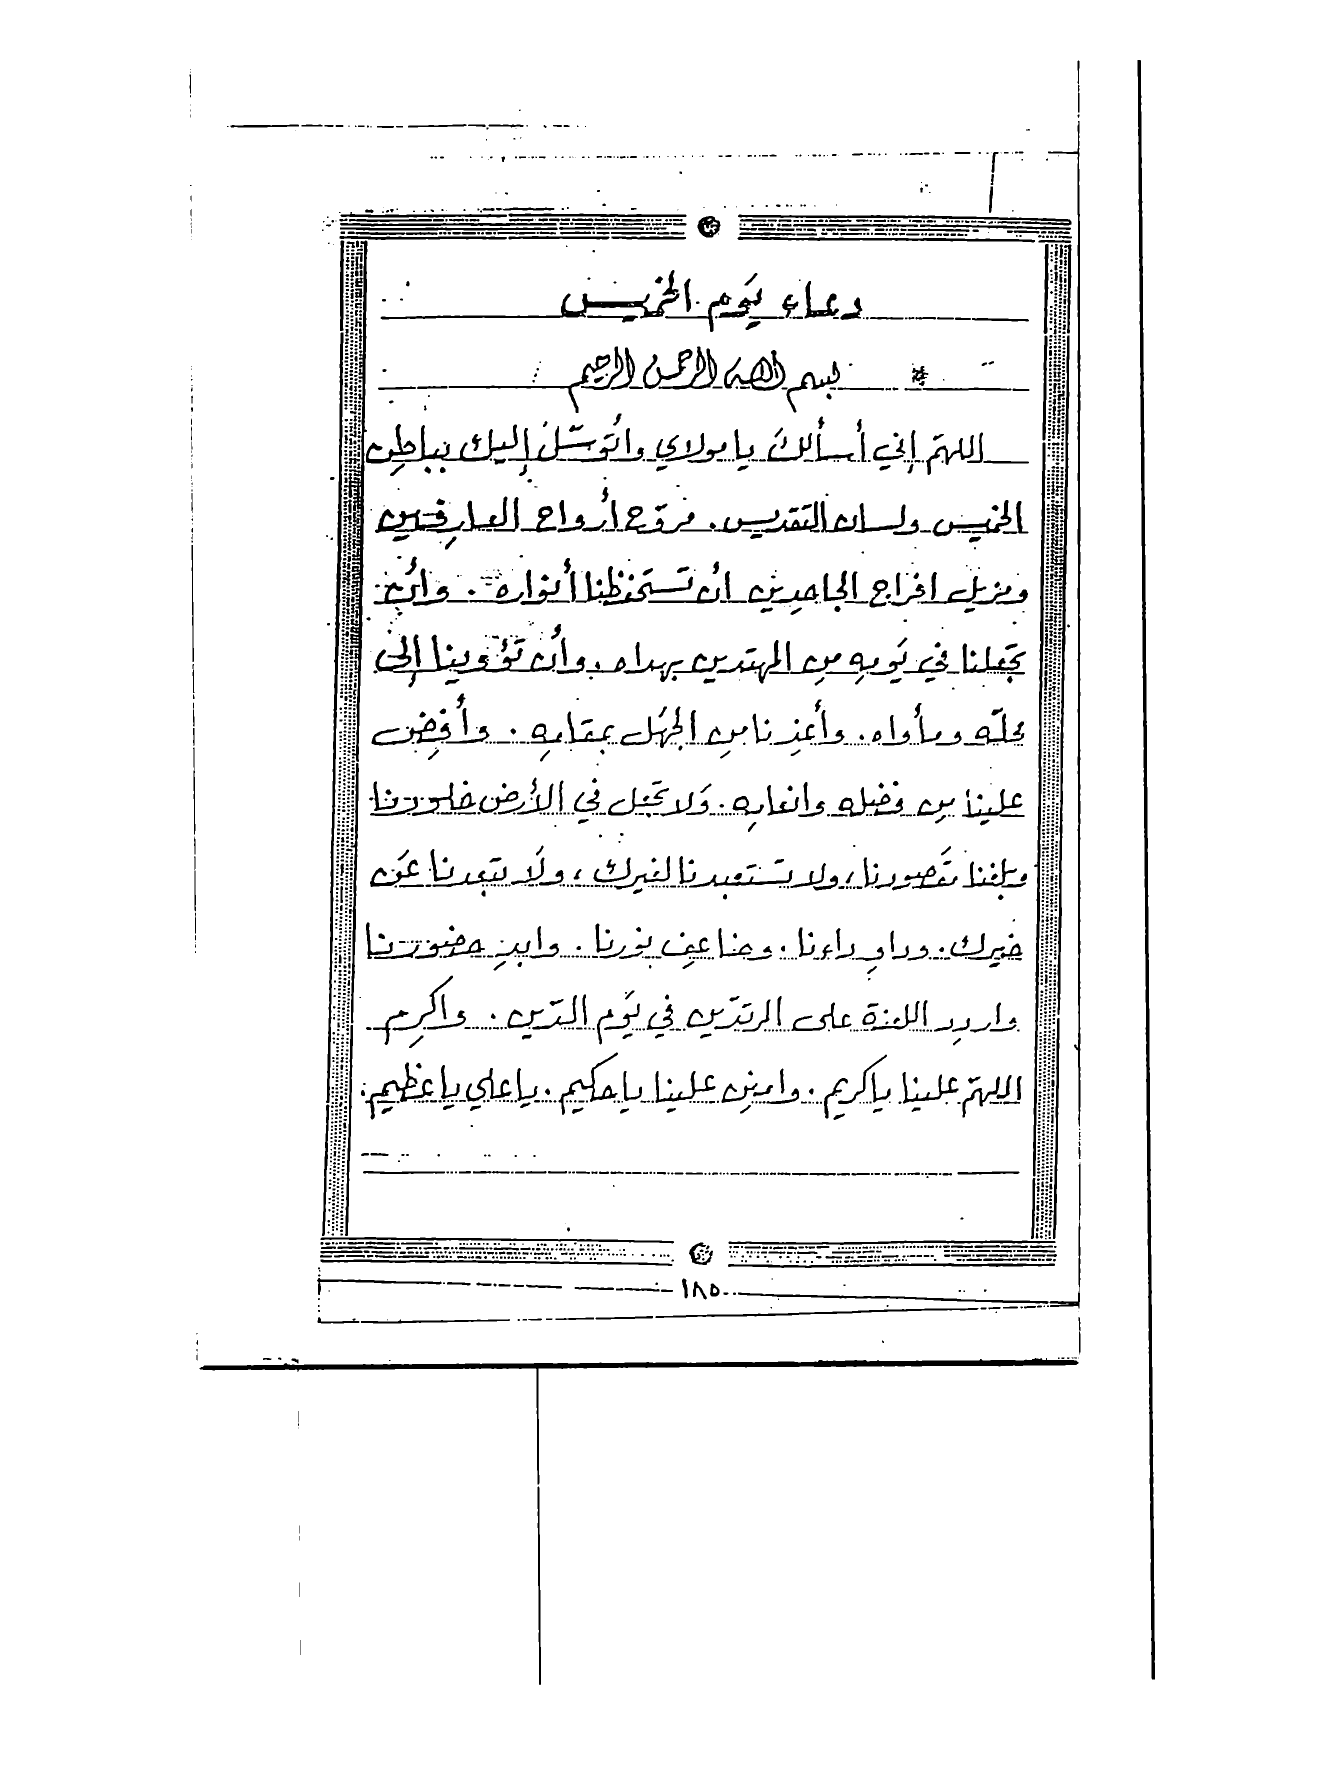 دعاء يَوم الخميس
بسم الله الرحمن الرحيم
اللهمّ إني أسألكَ يا مولاي واتُوسّلَ إليك بباطِن
الخميس ولسان التقديس. مروّح أرواح العارفين
ومزيل افراج الجاحدين ان تستحفظنا أنواره. وان
تجعلنا في يَومِهِ مِن المهتدين بهداه. وأن تؤوينا إلى
محلّه ومأواه. وأعذنا مِن الجهل بمقامِه. وأفِض
علينا مِن فضله وانعامِه. وَلا تجعل في الأرض خلودنا
وبلغنا مقصودنا، ولا تستعبدنا لغيرك، ولَا تبعدنا عَن
خيرك. وداوِ داءنا. وضاعِف نورنا. وابدِ حضورنا
وارددِ اللعنة على المرتدّين في يَوم الدّين. واكرِم
اللهمّ علينا يا كريم. وامنِن علينا يا حكيم. يا علي يا عظيم.
١٨٥